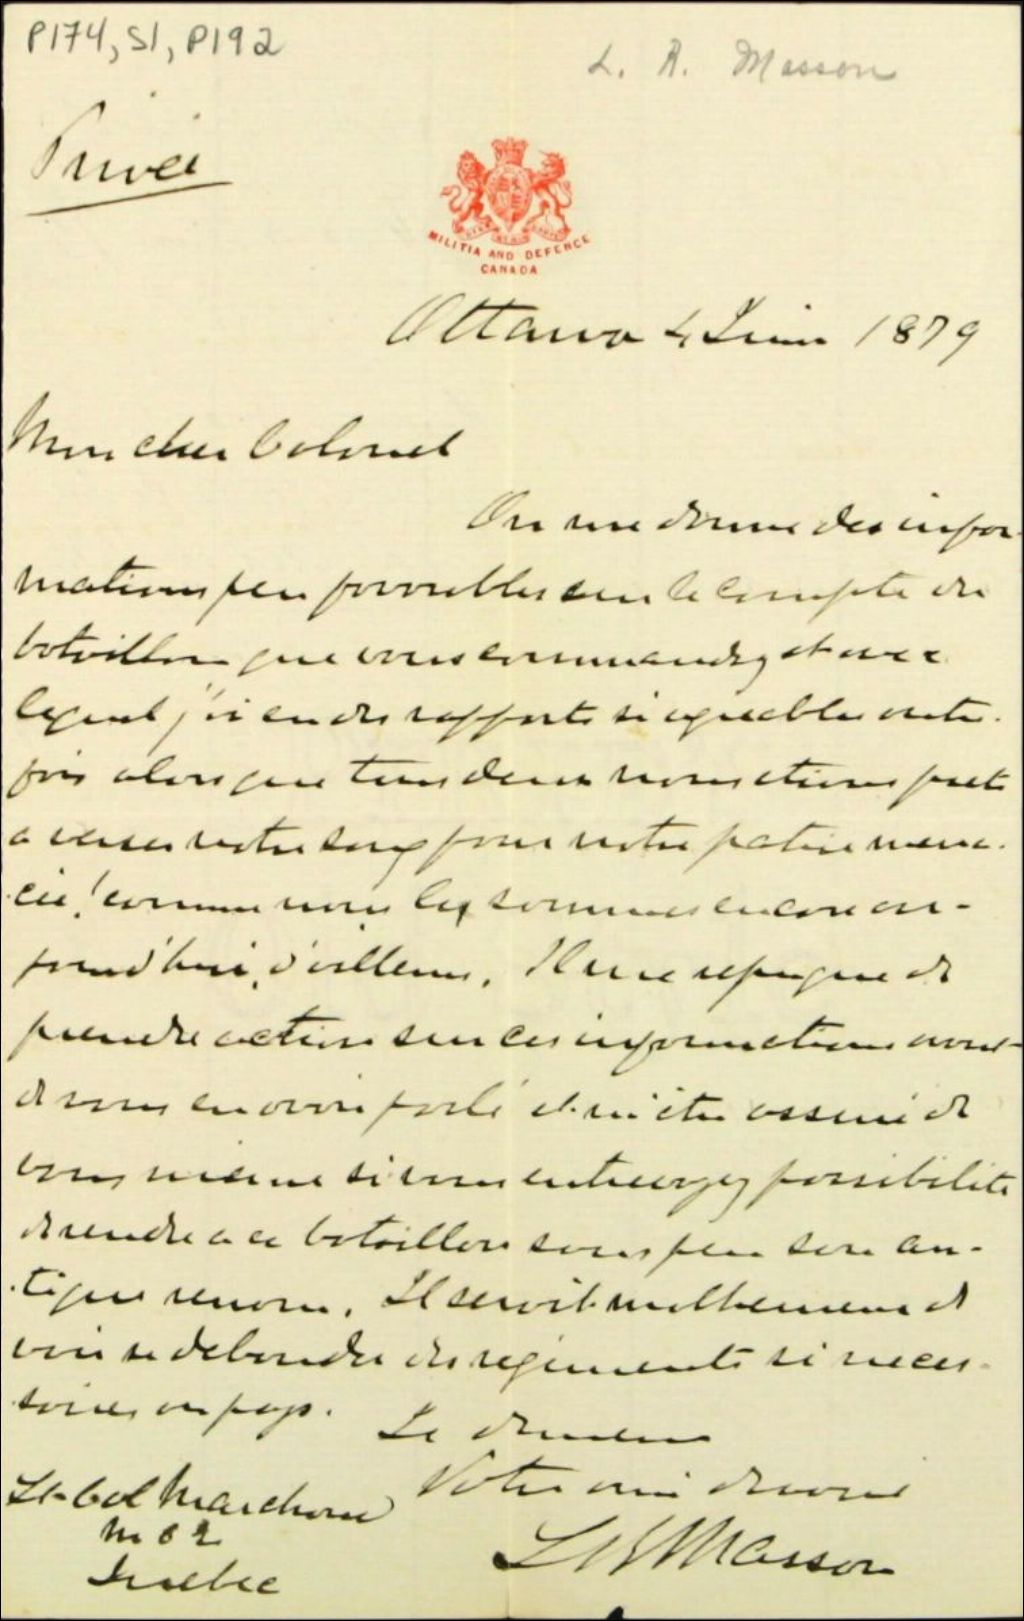 P174, S1, P192
L. R. Masson
Privée
MILITIA AND DEFENCE
CANADA
Ottawa 4 Juin 1879
Mon cher Colonel
On me donne des infor-
mations peu favorables sur le compte du
bataillon que vous commandez et avec
lequel j'ai eu des rapports si agreables autre-
fois alors que tous deux nous etions prets
a verser notre sang pour notre patrie mena-
cée, comme nous les sommes encore au-
jourd'hui, d'ailleurs. Il me repugne de
prendre action sur ces informations avant
de vous en avoir parlé et m'etre assuré de
vous meme si vous entrevoyez possibilité
de rendre a ce bataillon sous peu son an-
tique renom. Il serait malheureux de
voir se debander des regiments si neces-
saires au pays. Je demeure
Votre ami devoué
LR Masson
Lt-Col Marchand
M P P
Quebec